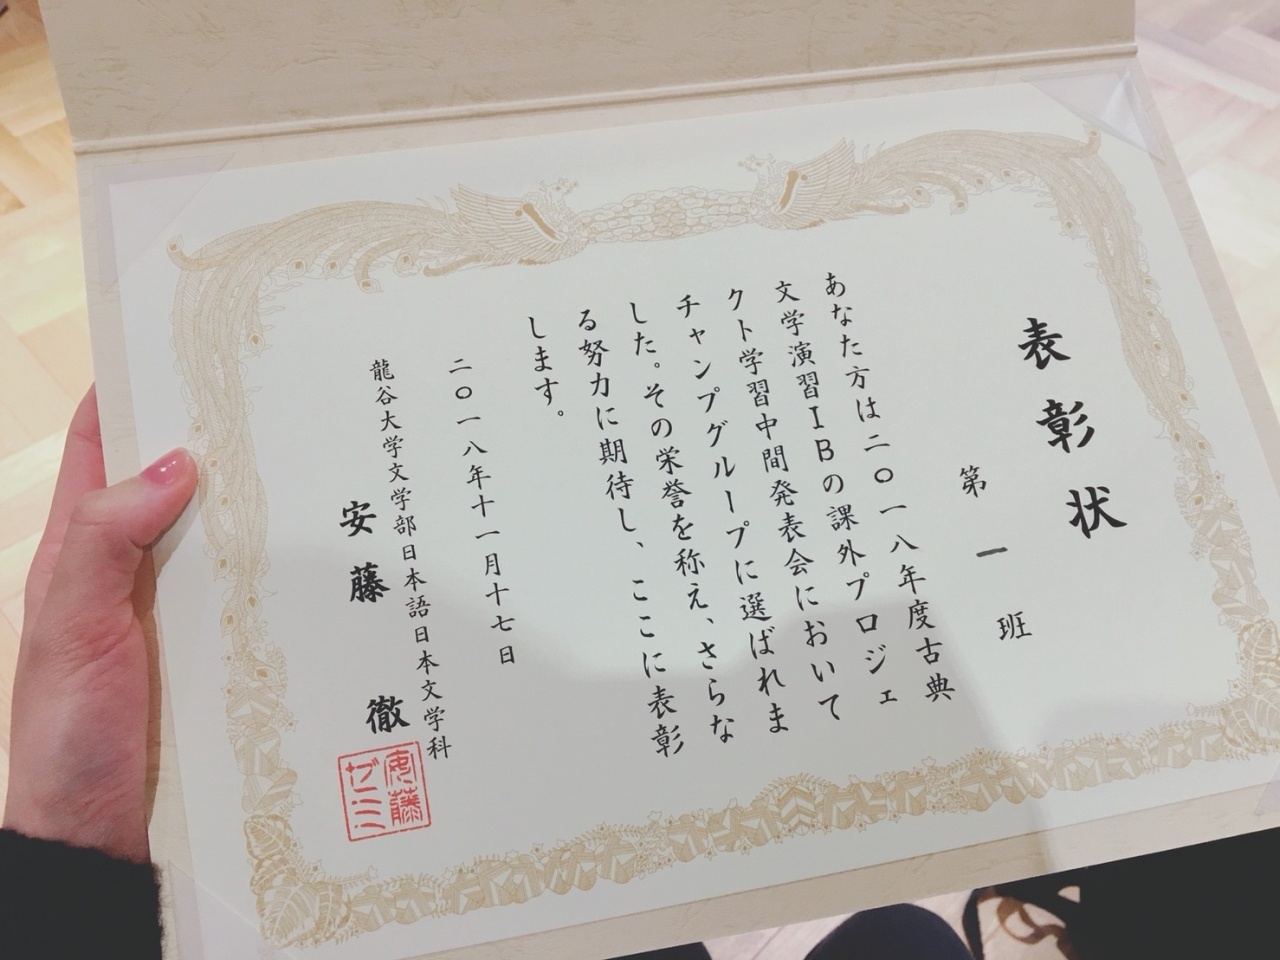 表彰状
第一班
あなた方は二〇一八年度古典
文学演習ＩＢの課外プロジェ
クト学習中間発表会において
チャンプグループに選ばれま
した。その栄誉を称え、さらな
る努力に期待し、ここに表彰
します。
二〇一八年十一月十七日
龍谷大学文学部日本語日本文学科
安藤 徹
安藤
ゼミ